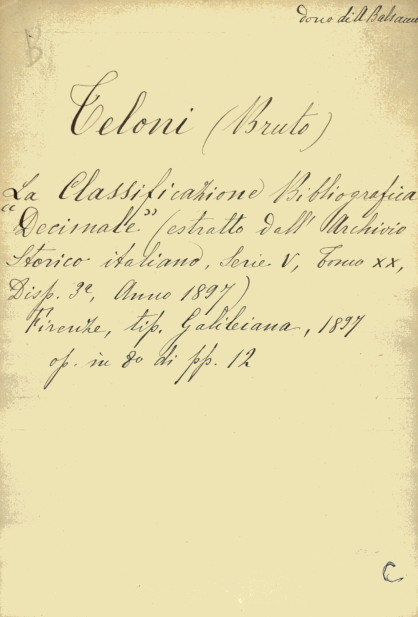 dono di A Balsamo
B
Teloni (Bruto)
La Classificazione Bibliografica
"Decimale" (estratto dall' Archivio
Storico italiano, Serie V, Tomo XX,
Disp. 3ª, Anno 1897)
Firenze, tip. Galileiana, 1897
op. in 8º di pp. 12
C